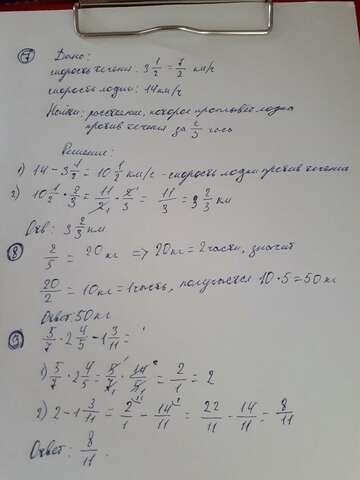 7 Дано:
скорость течения: 3 1/2 = 7/2 км/ч
скорость лодки: 14 км/ч
Найти: расстояние, которое проплывёт лодка
против течения за 2/3 часа
Решение:
1) 14 - 3 1/2 = 10 1/2 км/ч - скорость лодки против течения
2) 10 1/2 · 2/3 = 11/2 · 2/3 = 11/3 = 3 2/3 км
Отв: 3 2/3 км.
8 2/5 = 20 кг => 20 кг = 2 части, значит
20/2 = 10 кг = 1 часть, получается 10 · 5 = 50 кг
Ответ: 50 кг.
9 5/7 · 2 4/5 - 1 3/11 =
1) 5/7 · 2 4/5 = 5/7 · 14/5 = 2/1 = 2
2) 2 - 1 3/11 = 2/1 - 14/11 = 22/11 - 14/11 = 8/11
Ответ: 8/11.